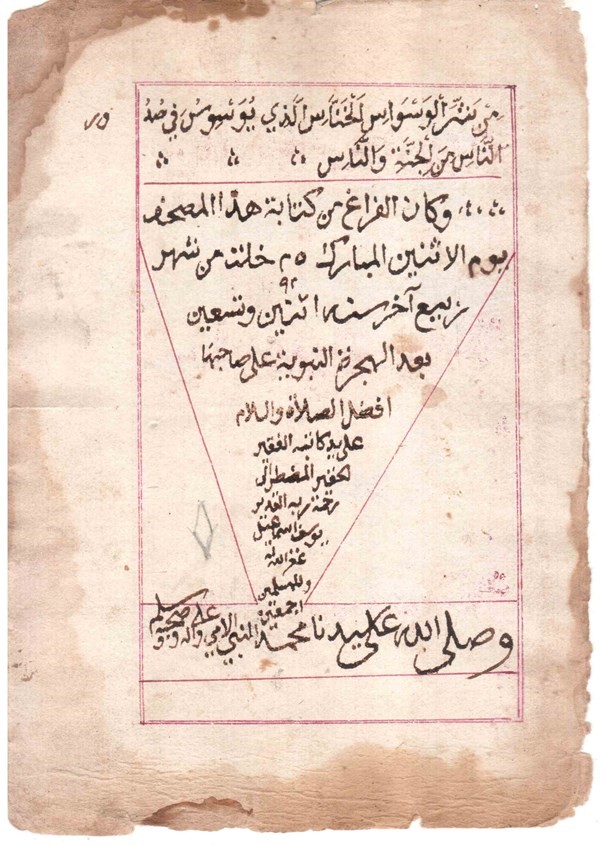 مِن شَرِّ الْوَسْوَاسِ الْخَنَّاسِ الَّذِي يُوَسْوِسُ فِي صُدُ
النَّاسِ مِنَ الْجِنَّةِ وَالنَّاسِ
وكان الفراغ من كتابة هذا المصحف
يوم الاثنين المبارك ٢٥ خلت من شهر
ربيع آخر سنة اثنين وتسعين
٩٢
بعد الهجرة النبوية على صاحبها
افضل الصلاة والسلام
على يد كاتبه الفقير
الحقير المضطر الى
رحمة ربه القدير
يوسف اسماعيل
غفر الله له
وللمسلمين
اجمعين
وصلى الله على سيدنا محمد النبي الامي وآله وصحبه وسلم